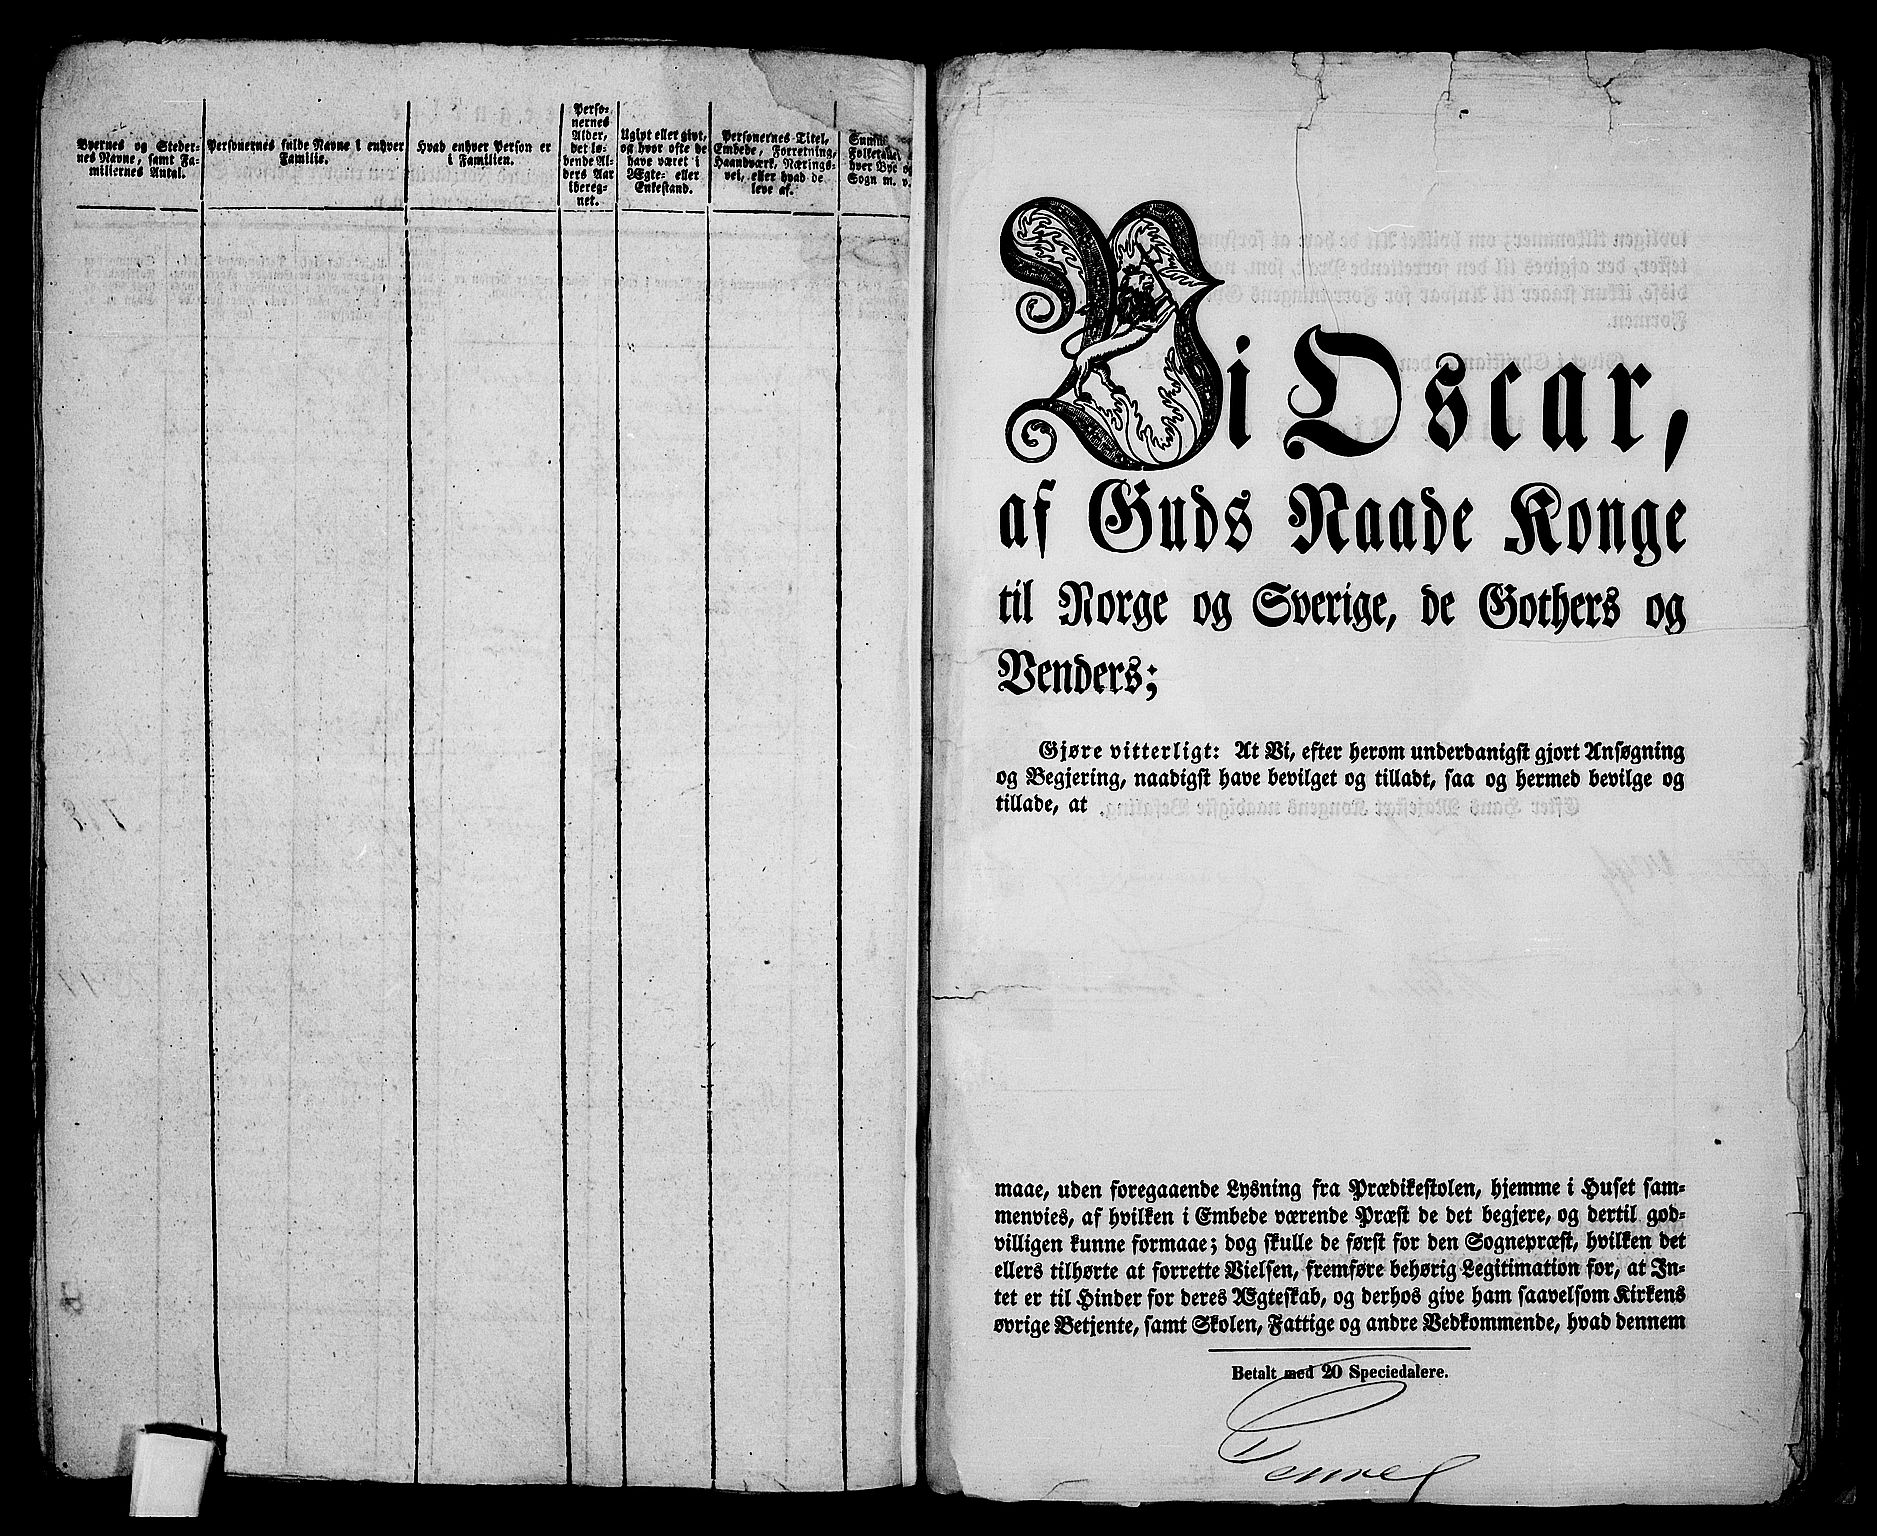 Byernes og Steder-
nes Navne, samt Fa-
miliernes Antal.
Personernes fulde Navne i enhver
Familie.
Hvad enhver Person er
i Familien.
Perso-
nernes
Alder,
det lø-
bende Al-
ders Aar
iberegnet-
net.
Ugivt eller givt,
og hvor ofte de
have været i
Ægte- eller
Enkestand.
Personernes Titel,
Embede, Forretning,
Haandværk, Nærings-
vei, eller hvad de
leve af.
Summa
Folketal
hver Bye
Sogn m. v.
Vi Oscar,
af Guds Naade Konge
til Norge og Sverige, de Gothers og
Venders;
Gjøre vitterligt: At Vi, efter herom underdanigst gjort Ansøgning
og Begjering, naadigst have bevilget og tilladt, saa og hermed bevilge og
tillade, at
maae, uden foregaaende Lysning fra Prædikestolen, hjemme i Huset sam-
menvies, af hvilken i Embede værende Præst de det begjere, og dertil god-
villigen kunne formaae; dog skulle de først for den Sognepræst, hvilken det
ellers tilhørte at forrette Vielsen, fremføre behørig Legitimation for, at In-
tet er til Hinder for deres Ægteskab, og derhos give ham saavelsom Kirkens
øvrige Betjente, samt Skolen, Fattige og andre Vedkommende, hvad dennem
Betalt med 20 Speciedalere.